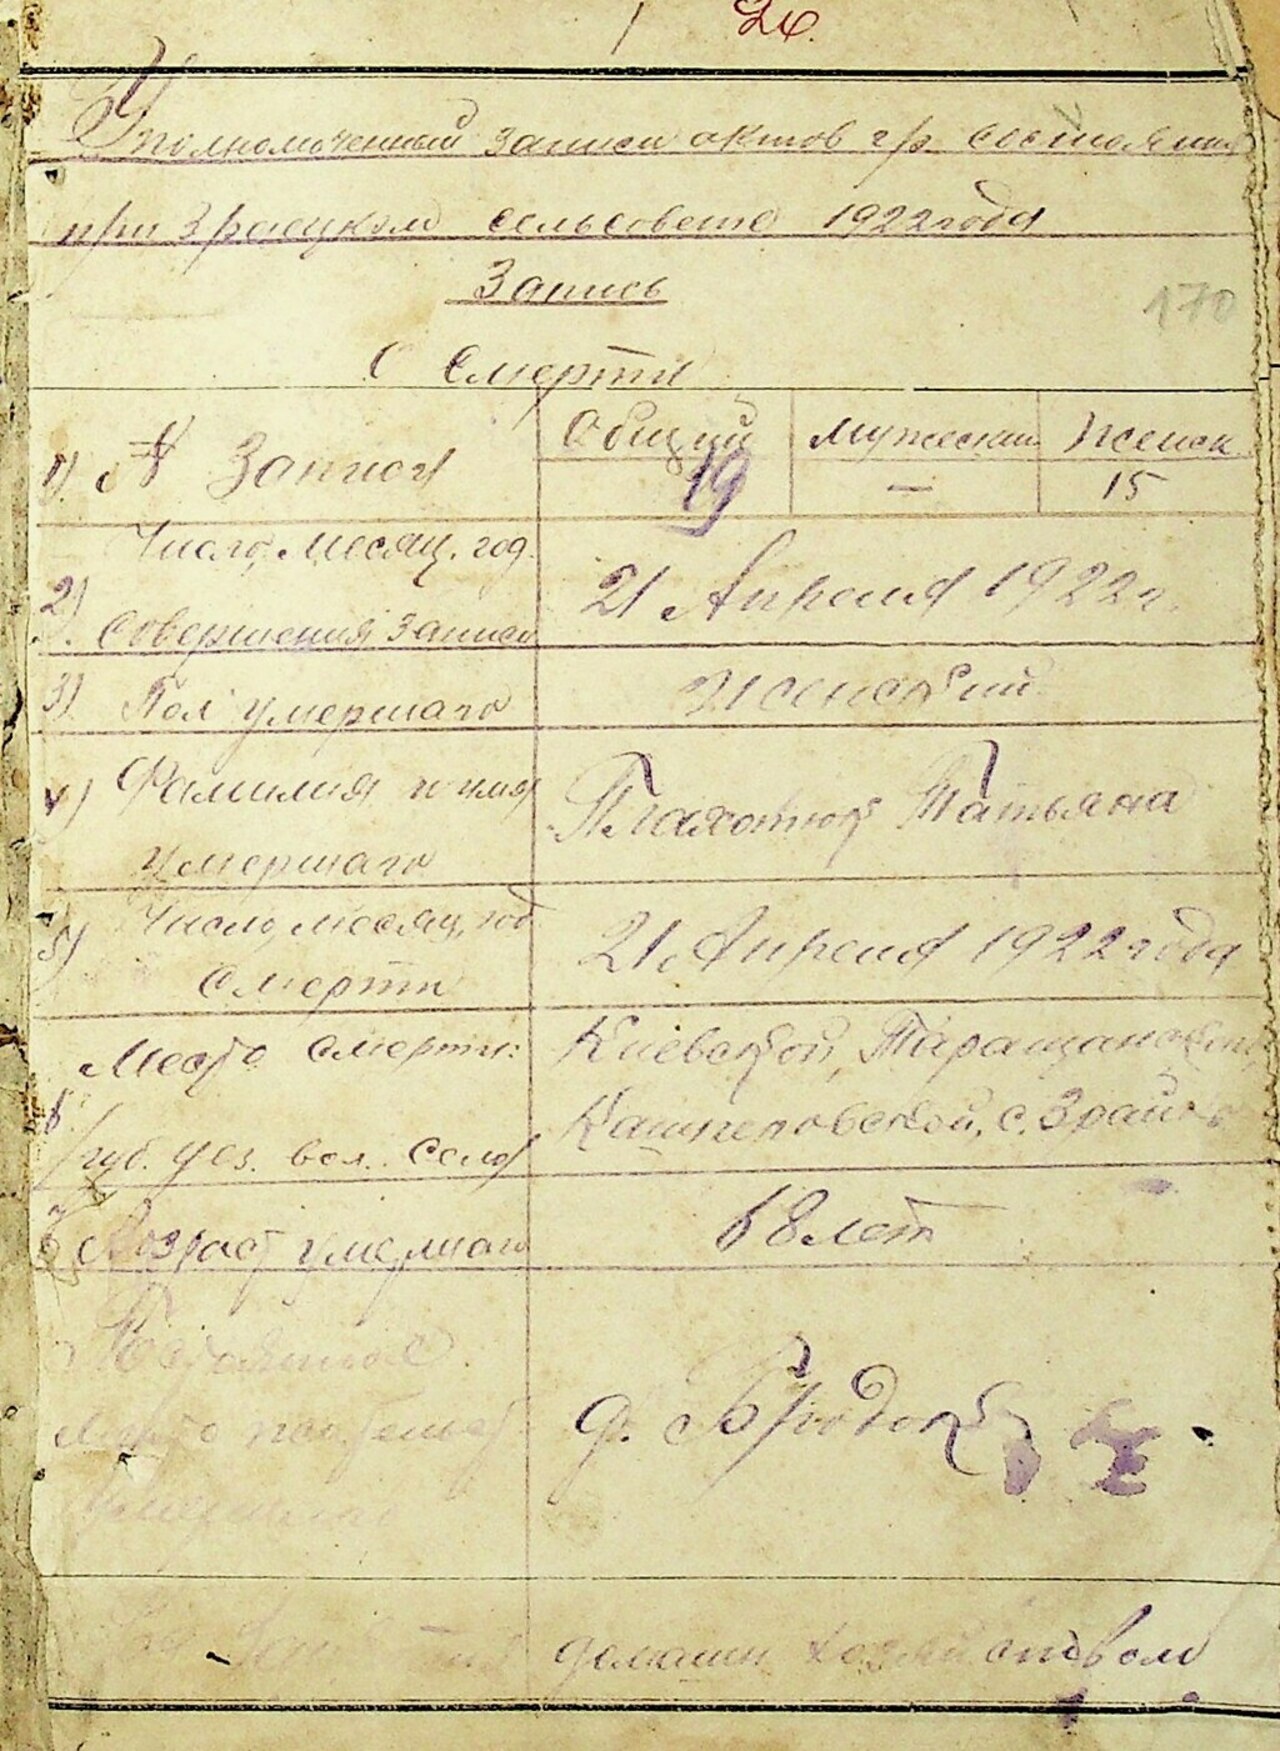 26.
Уполномоченный записи актов гр. состояния
при Зрайцком сельсовете 1922 года
Запись
170
О Смерти
1) № Записи
Общий Мужеский Женск
19 — 15
Число, месяц, год
2) Совершения записи
21 Апреля 1922 г.
3) Пол умершаго
Женский
4) Фамилия и имя
умершаго
Плахотнюк Татьяна
5) Число, месяц, год
смерти
21 Апреля 1922 года
Место смерти:
губ. уез. вол. село
Киевской, Таращанской
Кашперовской, с.
Возраст умершаго
68 лет
Постоянное
место
умершаго
д.
домашн хозяйством